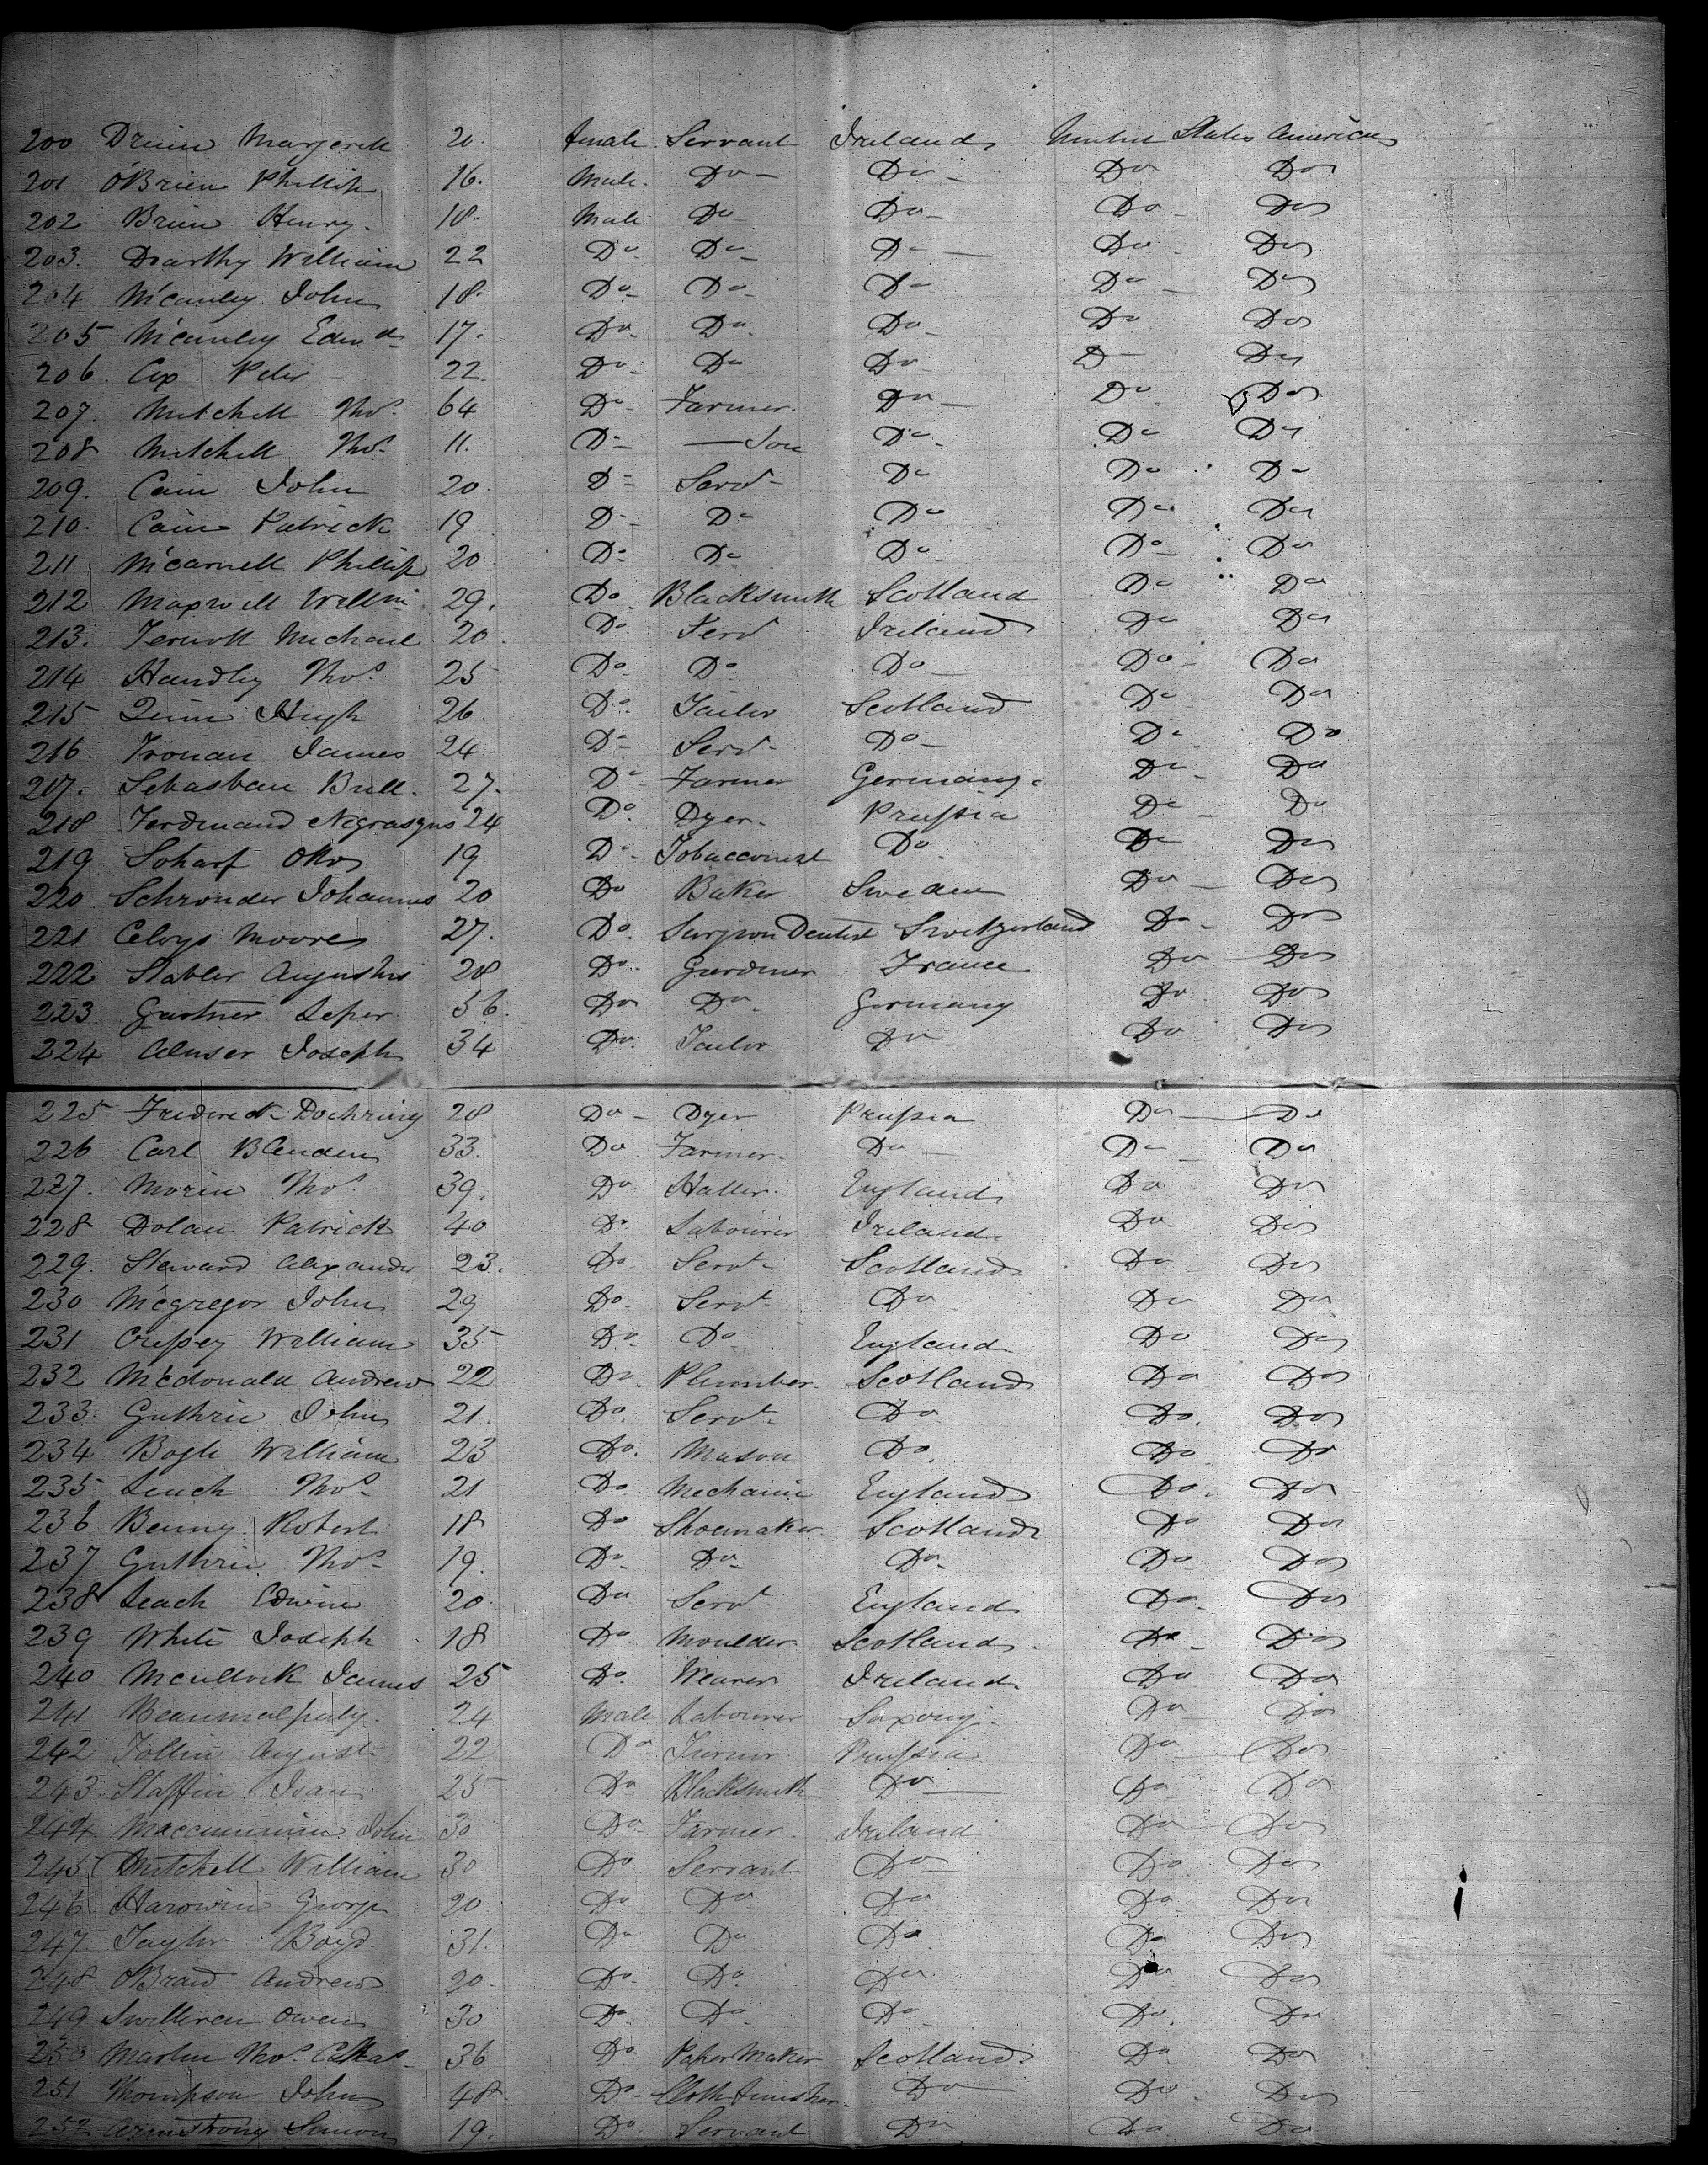 200 Drinn Margerett 20. female Servant Ireland United States America
201 O'Brien Phillip 16. Male. Do Do Do Do
202 Brien Henry. 18. Male Do Do Do Do
203. Dearthy William 22 Do Do Do Do Do
204 M'cauley John 18. Do Do Do Do Do
205 M'cauley Edwd 17. Do Do. Do Do Do
206. Cox Peter 22. Do Do Do Do Do
207. Mitchell Thos. 64 Do Farmer. Do Do Do
208 Mitchell Thos. 11. Do Son Do Do Do
209. Cain John 20. Do Servt Do Do Do
210. Cain Patrick 19 Do Do Do Do Do
211 M'carnell Phillip 20 Do Do Do Do Do
212 Maxwell Willm 29. Do Blacksmith Scotland Do Do
213. Michael 20. Do Servt Ireland Do Do
214 Handley Thos. 25 Do Do Do Do Do
215 Quinn Hugh 26 Do Tailor Scotland Do Do
216. Tronan James 24 Do Servt Do Do Do
217. Sebastean Bull. 27. Do Farmer Germany. Do Do
218 Ferdinand 24 Do Dyer. Prussia Do Do
219 Scharf Otto 19 Do Tobacconist Do Do Do
220. Schronder Johannes 20 Do Baker Sweden Do Do
221 Cloys Moore 27. Do Surgeon Dentist Switzerland Do Do
222 Stabler Augustus 28 Do Gardiner France Do Do
223 Gartner Seper 36. Do Do Germany Do Do
224 Joseph 34 Do. Tailor Do Do Do
225 Frederick Doehring 28 Do Dyer Prussia Do Do
226 Carl 33. Do Farmer. Do Do Do
227. Morin Thos. 39. Do Hatter. England Do Do
228 Dolan Patrick 40 Do Labourer Ireland Do Do
229. Steward Alexander 23. Do Servt Scotland Do Do
230 M'cgregor John 29 Do. Servt Do Do Do
231 Cressey William 35 Do Do England Do Do
232 M'cdonald Andrew 22 Do. Plumber. Scotland Do Do
233. Guthrie John 21. Do. Servt Do Do. Do
234 Bogle William 23 Do. Mason Do. Do Do
235 Leach Thos. 21 Do Mechanic England Do. Do
236 Benny Robert 18 Do Shoemaker Scotland Do Do
237 Guthrie Thos. 19. Do Do Do Do Do
238 Leach Edwin 20. Do Servt England Do Do
239 White Joseph 18 Do Moulder Scotland Do Do
240 Mcullock James 25 Do. Weaver Ireland. Do Do
241 24 Male Labourer Saxony. Do Do
242 Tollin August 22 Do Turner Prussia Do Do
243. Staffin Ivan 25 Do Blacksmith Do Do Do
244 John 30 Do Farmer. Ireland Do Do
245 Mitchell William 30 Do Servant Do Do Do
246. Harowin George 20 Do Do Do Do Do
247. Taylor Boyd. 31. Do Do Do Do Do
248 O'Braid Andrew 20. Do. Do. Do Do Do
249 Swilliven Owen 30 Do. Do Do Do. Do
250 Martin Thos. 36 Do Paper Maker Scotland. Do Do
251 Thompson John 48 Do Cloth finisher. Do Do Do
252 Armstrong Simon 19. Do Servant Do Do Do